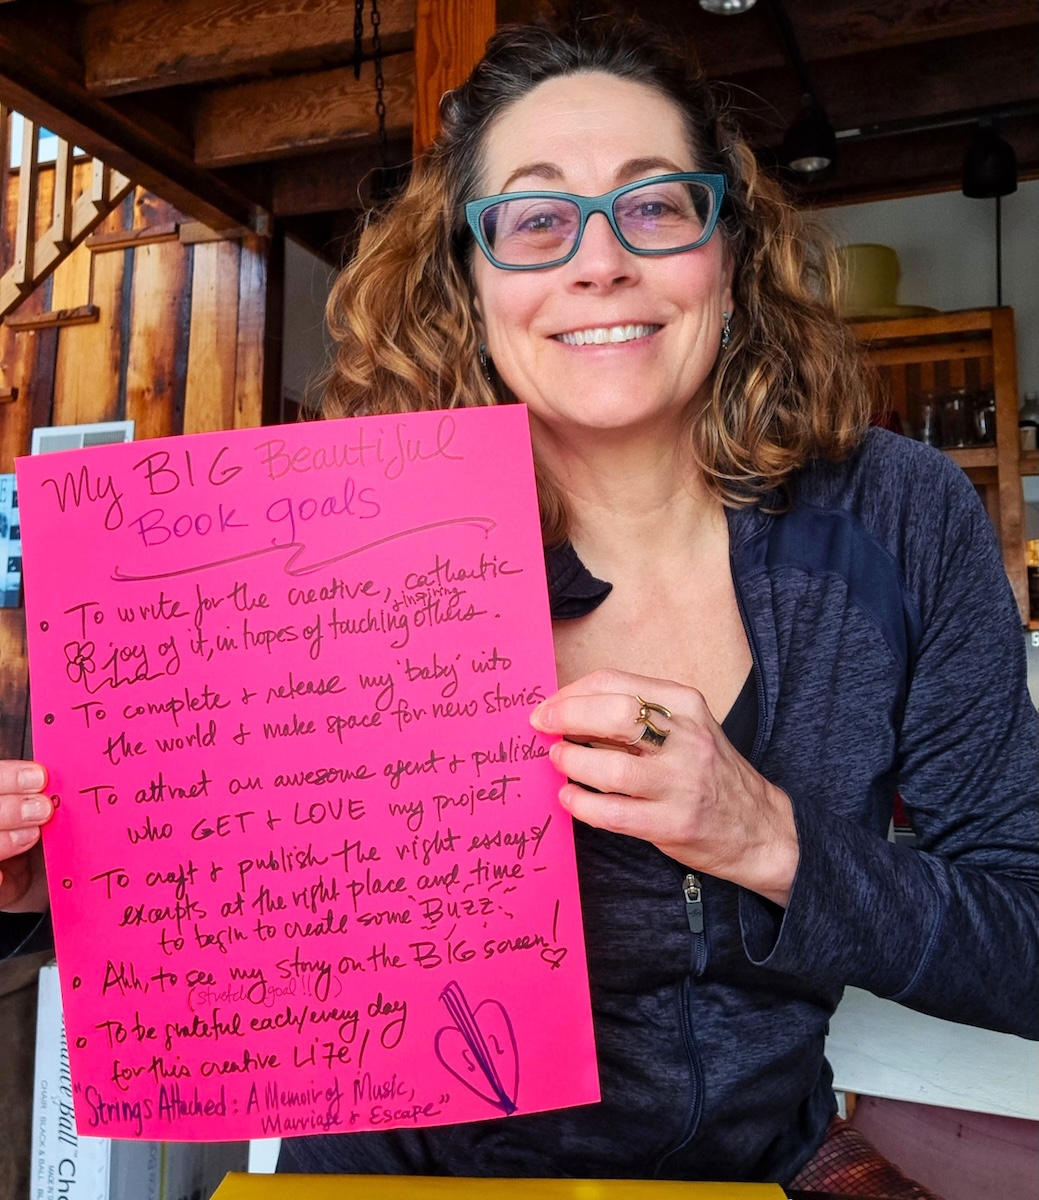 My BIG Beautiful
Book goals
• To write for the creative, cathartic
& inspiring
joy of it, in hopes of touching others.
• To complete & release my 'baby' into
the world & make space for new stories
• To attract an awesome agent & publishe
who GET & LOVE my project.
• To craft & publish the right essays/
excerpts at the right place and time –
to begin to create some BUZZ.
• Ahh, to see my story on the BIG screen!
(stretch goal!!)
• To be grateful each/every day
for this creative LIFE!
"Strings Attached: A Memoir of Music,
Marriage & Escape"
Balance Ball™ Cha
CHAIR · BLACK & BALL
MADE IN